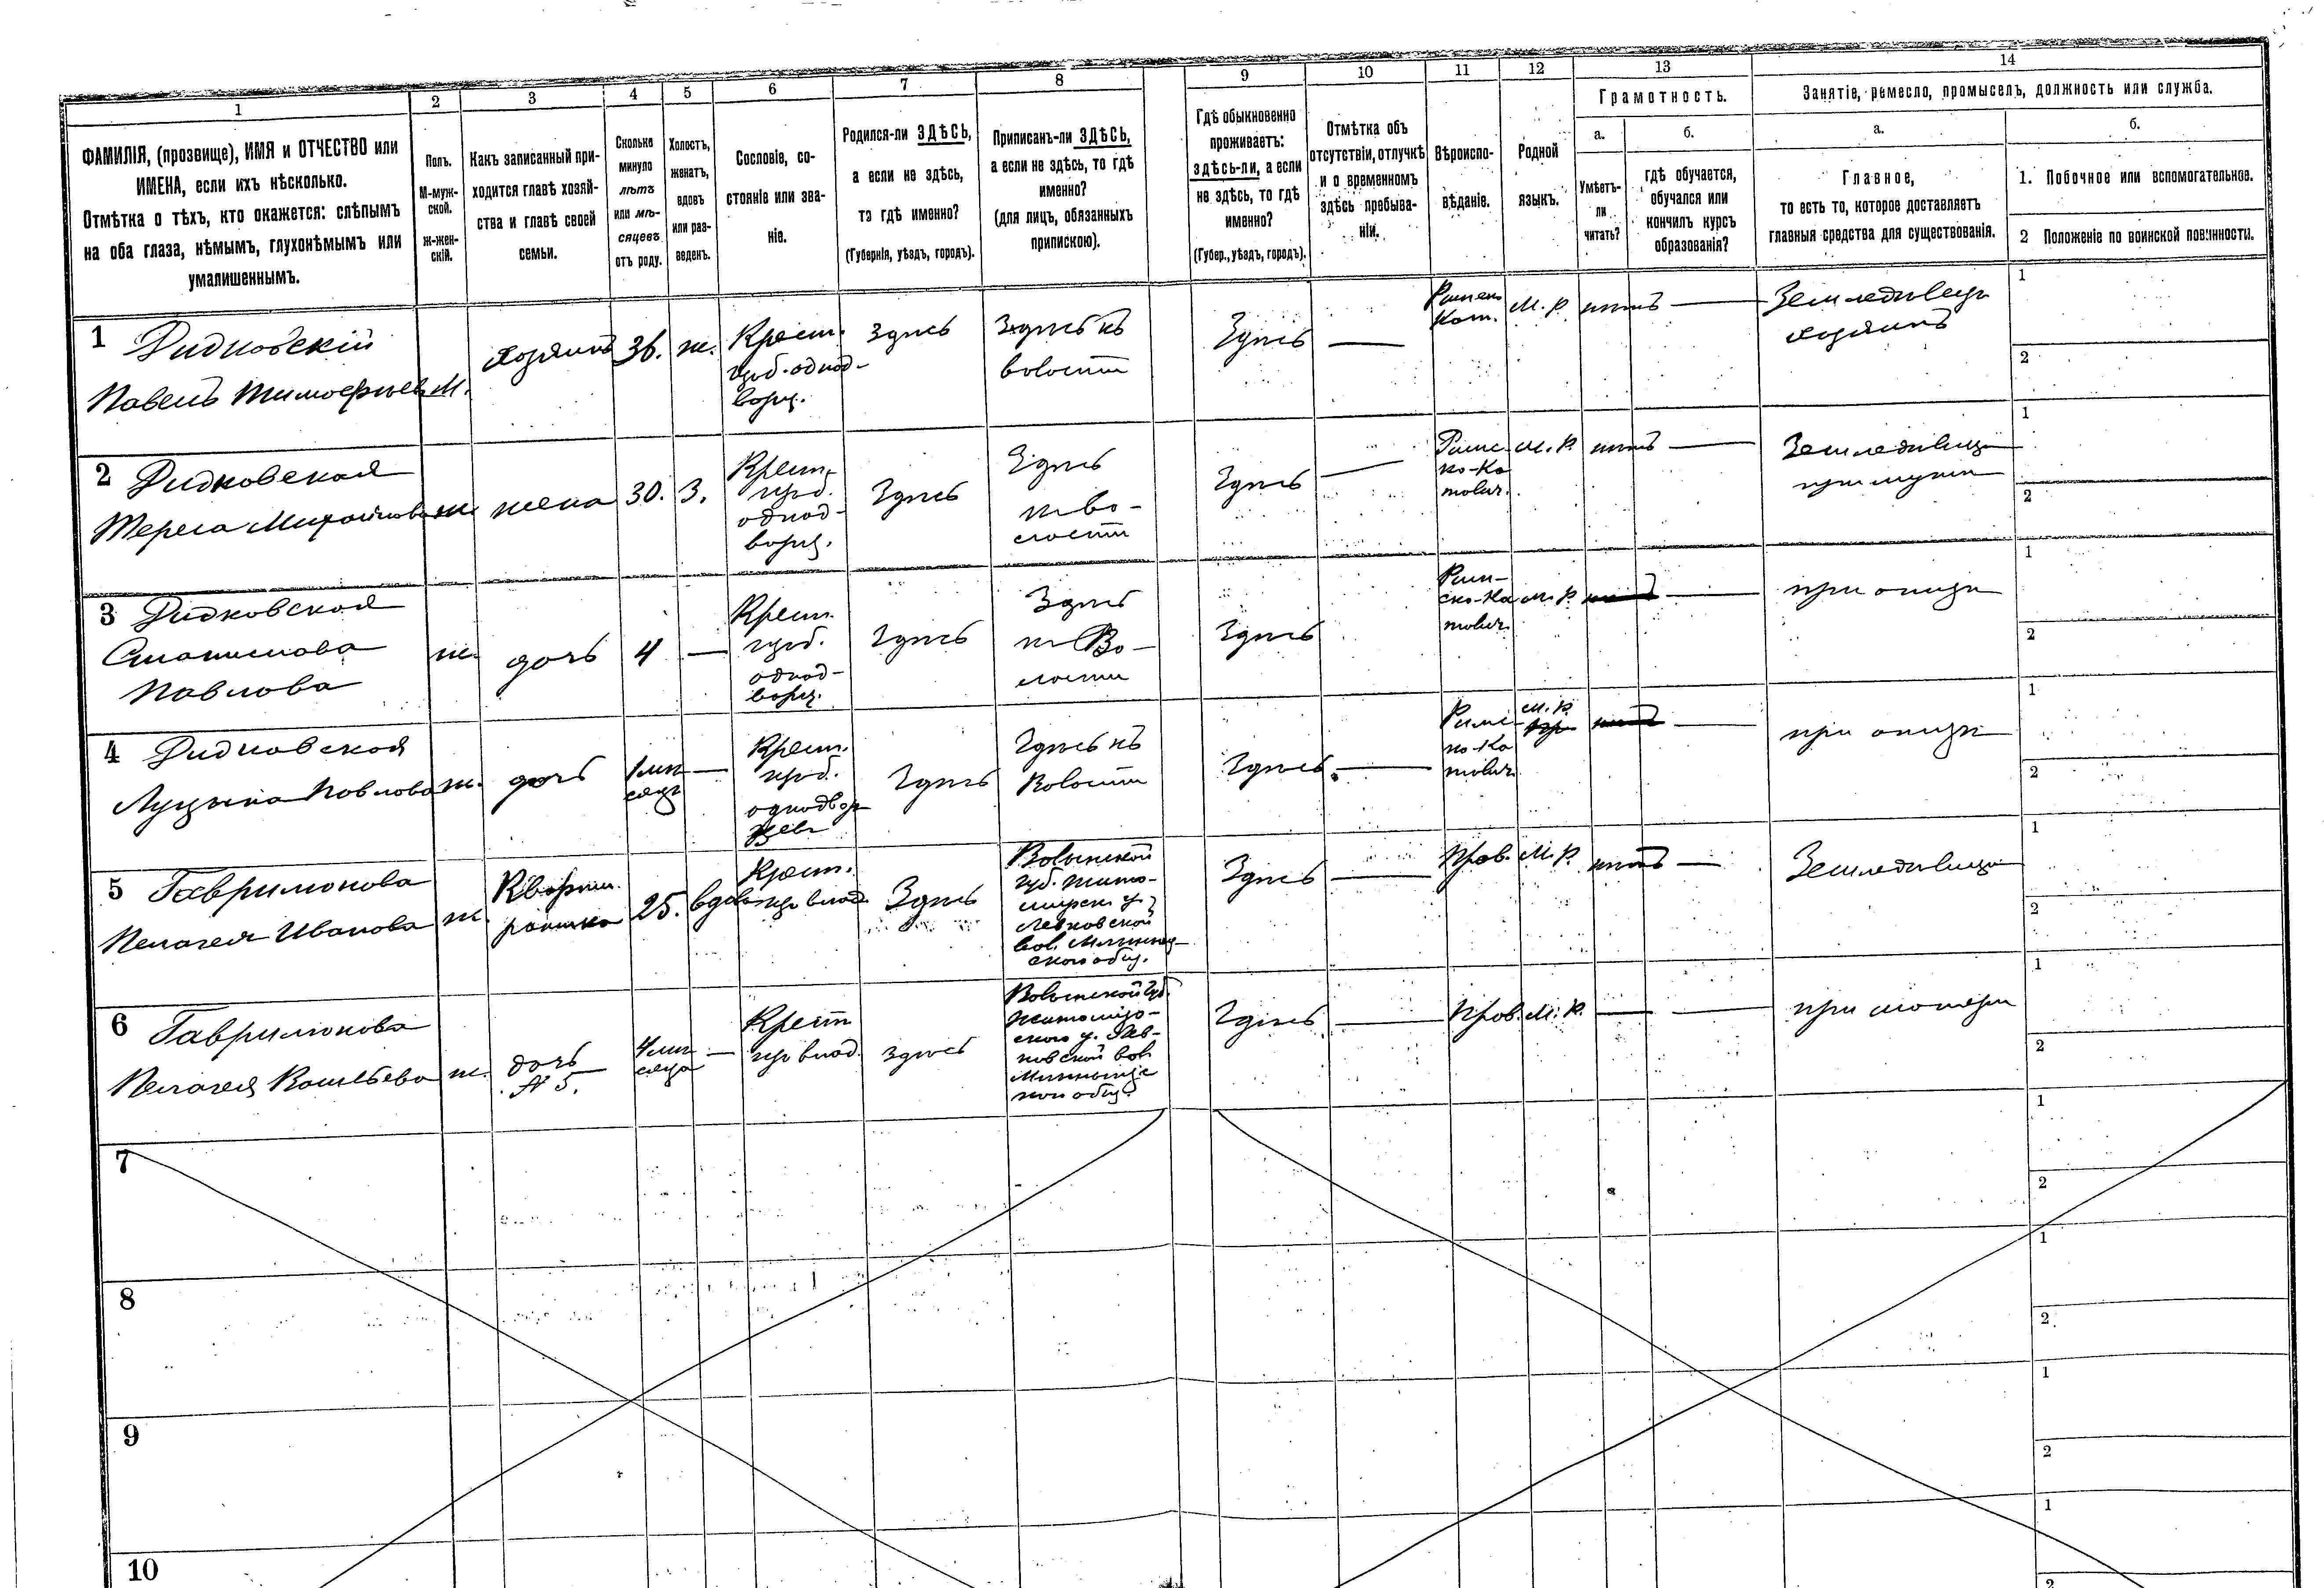 1
2
3
4
5
6
7
8
9
10
11
12
13
14
ФАМИЛІЯ, (прозвище), ИМЯ и ОТЧЕСТВО или
ИМЕНА, если ихъ нѣсколько.
Отмѣтка о тѣхъ, кто окажется: слѣпымъ
на оба глаза, нѣмымъ, глухонѣмымъ или
умалишеннымъ.
Полъ.
М-муж-
ской.
Ж-жен-
скій.
Какъ записанный при-
ходится главѣ хозяй-
ства и главѣ своей
семьи.
Сколько
минуло
лѣтъ
или мѣ-
сяцевъ
отъ роду.
Холостъ,
женатъ,
вдовъ
или раз-
веденъ.
Сословіе, со-
стояніе или зва-
ніе.
Родился-ли ЗДѢСЬ,
а если не здѣсь,
то гдѣ именно?
(Губернія, уѣздъ, городъ).
Приписанъ-ли ЗДѢСЬ,
а если не здѣсь, то гдѣ
именно?
(для лицъ, обязанныхъ
припискою).
Гдѣ обыкновенно
проживаетъ:
здѣсь-ли, а если
не здѣсь, то гдѣ
именно?
(Губер., уѣздъ, городъ).
Отмѣтка объ
отсутствіи, отлучкѣ
и о временномъ
здѣсь пребыва-
ніи.
Вѣроиспо-
вѣданіе.
Родной
языкъ.
Грамотность.
а.
Умѣетъ-
ли
читать?
б.
гдѣ обучается,
обучался или
кончилъ курсъ
образованія?
Занятіе, ремесло, промыселъ, должность или служба.
а.
Главное,
то есть то, которое доставляетъ
главныя средства для существованія.
б.
1. Побочное или вспомогательное.
2 Положеніе по воинской повинности.
1 Дидковскій
Павелъ Тимофѣев
М.
хозяинъ
36.
ж.
Крест.
изъ однод-
ворц.
здѣсь
Здѣсь къ
волости
Здѣсь
Римско
Кат.
М. р.
нѣтъ
Земледѣлецъ
хозяинъ
1
2
2 Дидковская
Тереса Михайлова
ж.
жена
30.
З.
Крест.
изъ
однод-
ворц.
Здѣсь
Здѣсь
къ во-
лости
Здѣсь
Римс
ко-Ка
толич.
М. р.
нѣтъ
Земледѣлица
при мужѣ
1
2
3 Дидковская
Станислава
Павлова
ж.
дочь
4
Крест.
изъ
однод-
ворц.
Здѣсь
Здѣсь
къ Во-
лости
Здѣсь
Рим-
ско-Ка
толич.
М. р.
при отцѣ
1
2
4 Дидковская
Луцына Павлова
ж.
дочь
1 мѣ
сяцъ
Крест.
изъ
однодвор
цевъ
Здѣсь
Здѣсь къ
Волости
Здѣсь.
Римс
ко-Ка
толич.
М. р.
при отцѣ
1
2
5 Гаврилюкова
Пелагея Иванова
ж.
Кварти
рантка
25.
вдова
Крест.
изъ влад.
Здѣсь
Волынской
губ. Жито-
мирск. у.
Левковской
вол.
общ.
Здѣсь
Прав.
М. р.
нѣтъ
Земледѣлица
1
2
6 Гаврилюкова
Пелагея Васильева
ж.
дочь
№ 5.
4 мѣ
сяца
Крест
изъ влад.
здѣсь
Волынской губ.
Житомир-
ского у. Лев-
ковской вол.
общ.
Здѣсь
Прав.
М. р.
при матери
1
2
7
1
2
8
1
2
9
1
2
10
1
2